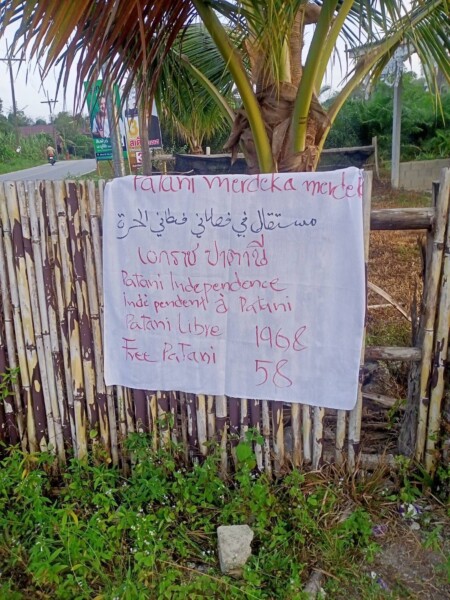 Patani merdeka merdek
مستقال في فطاني فطاني الحرة
เอกราช ปาตานี
Patani Independence
Independent à Patani
Patani Libre 1968
Free Patani 58